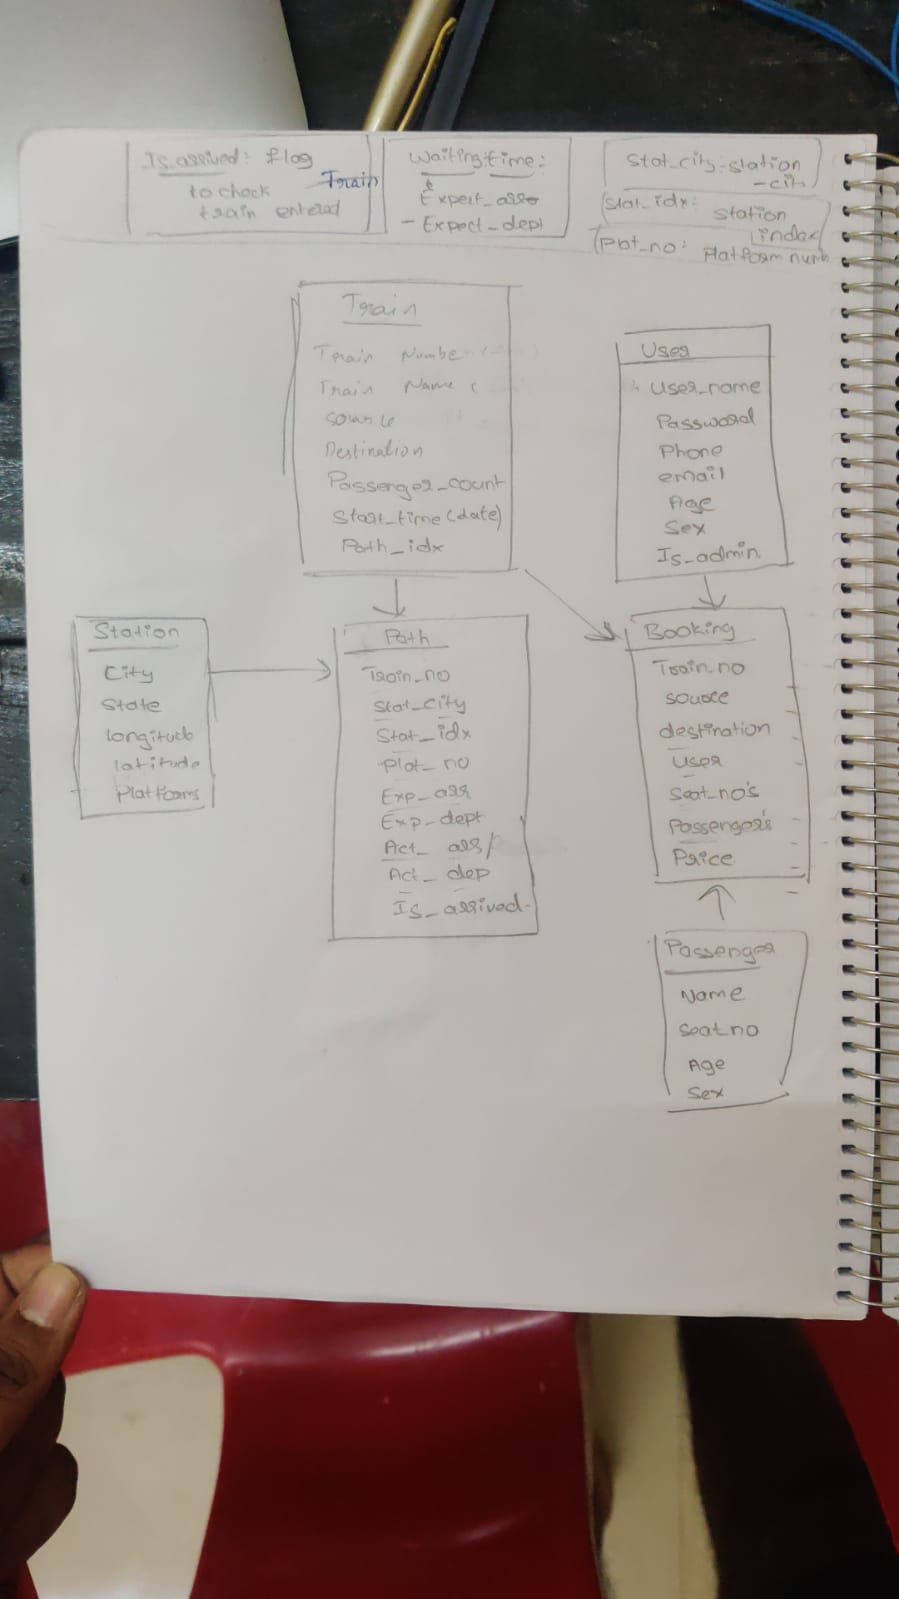 Is_arrived: flag
to check Train
train entered
Waiting time:
Expect_arr
- Expect_dept
Stat_city: station
- city
Stat_idx: station
index
Plat_no: Platform numb
Train
Train Number
Train Name (
source
Destination
Passenger_count
Start_time (date)
Path_idx
User
User_name
Password
Phone
email
Age
Sex
Is_admin
Station
City
State
longitude
latitude
Platforms
Path
Train_no
Stat_city
Stat_idx
Plat_no
Exp_arr
Exp_dept
Act_ arr/
Act_ dep
Is_arrived
Booking
Train_no
source
destination
User
Seat_no's
Passenger's
Price
Passenger
Name
Seat_no
Age
Sex